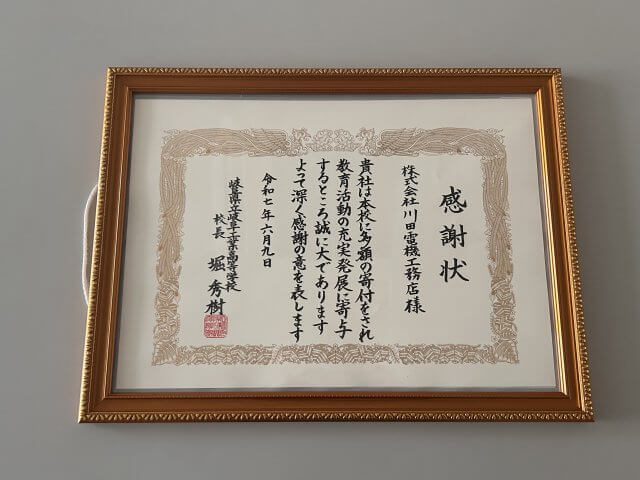 感謝状
株式会社 川田電機工務店様
貴社は本校に多額の寄付をされ
教育活動の充実発展に寄与
するところ誠に大であります
よって深く感謝の意を表します
令和七年六月九日
岐阜県立岐阜工業高等学校
校長 堀秀樹